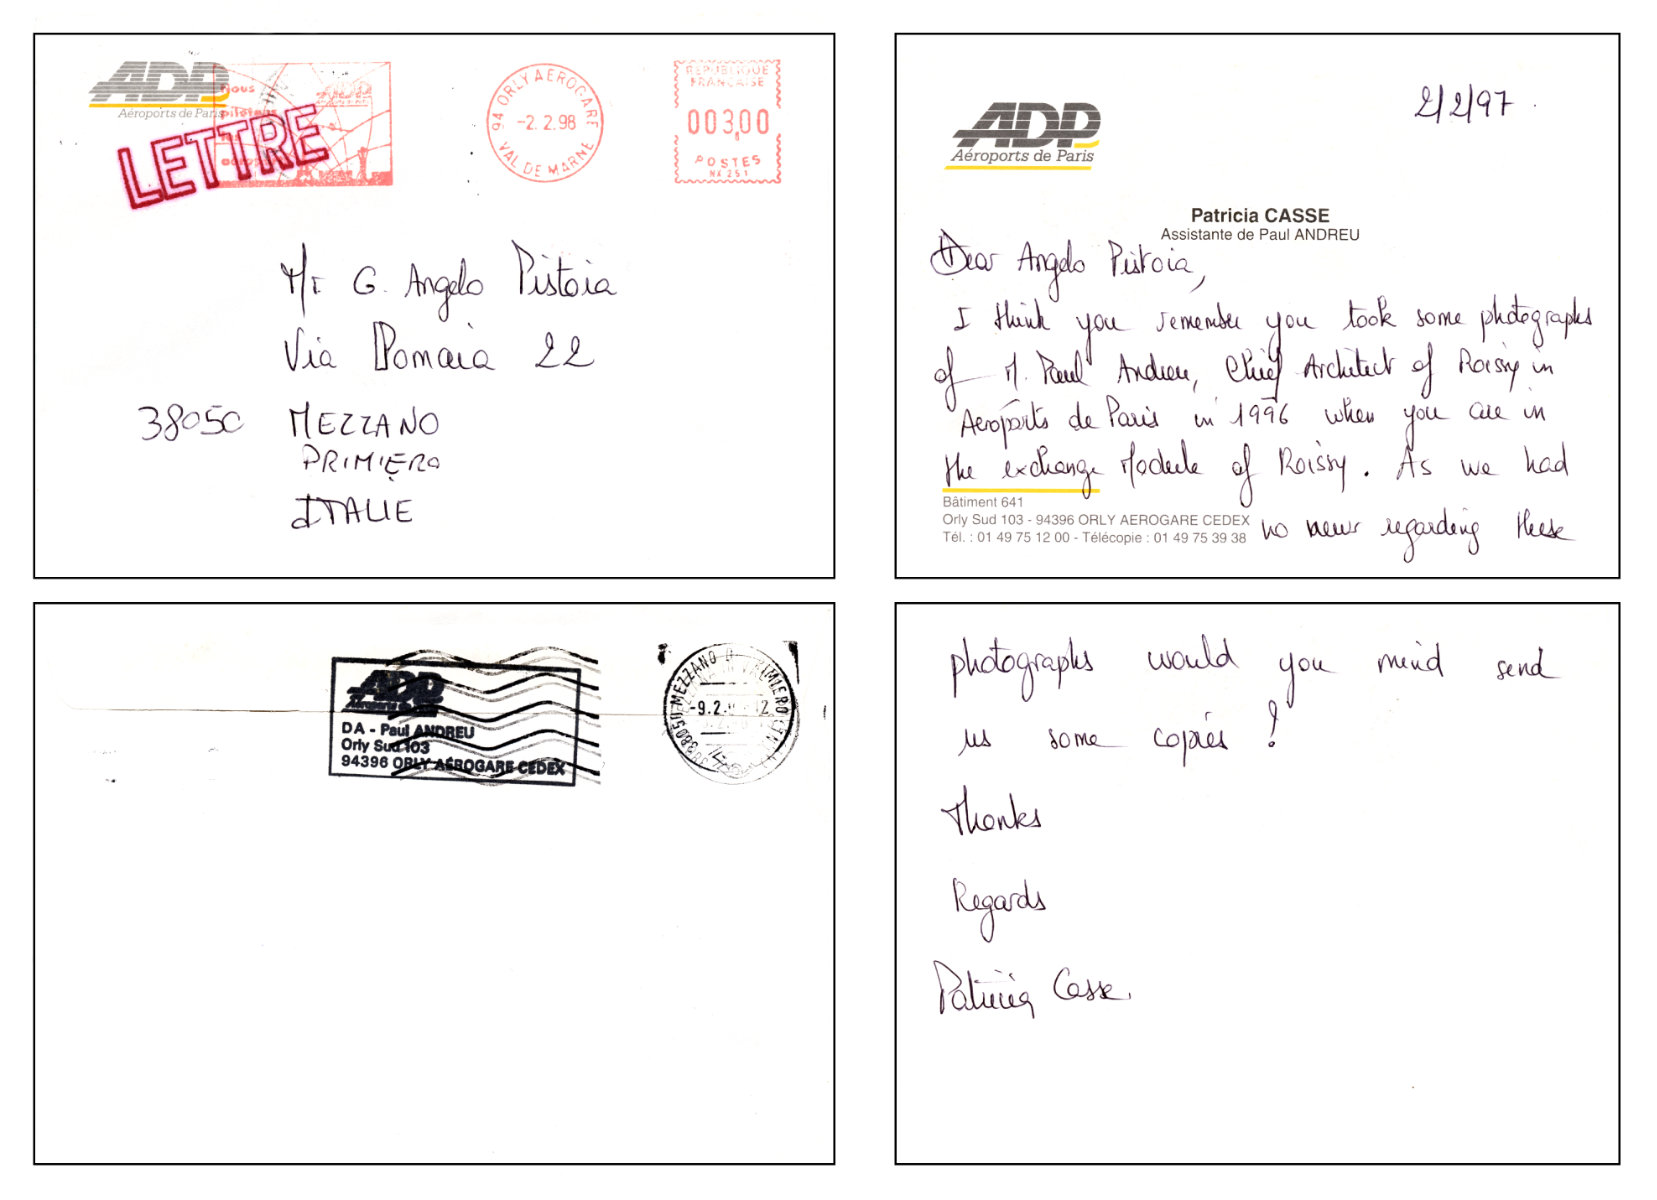 ADP
Aéroports de Paris
LETTRE
Nous
pilotons
les
94 ORLY AEROGARE
-2. 2.98
VAL DE MARNE
REPUBLIQUE
FRANCAISE
003,00
POSTES
NA 251
Mr G. Angelo Pistoia
Via Domaia 22
38050 MEZZANO
PRIMIERO
ITALIE
ADP
Aéroports de Paris
2/2/97
Patricia CASSE
Assistante de Paul ANDREU
Dear Angelo Pistoia,
I think you remember you took some photographs
of M. Paul Andreu, Chief Architect of Roissy in
Aeroports de Paris in 1996 when you are in
the exchange Module of Roissy. As we had
Bâtiment 641
Orly Sud 103 - 94396 ORLY AEROGARE CEDEX
Tél. : 01 49 75 12 00 - Télécopie : 01 49 75 39 38
no news regarding these
ADP
Aéroports de Paris
DA - Paul ANDREU
Orly Sud 103
94396 ORLY AÉROGARE CEDEX
38050 MEZZANO
-9.2.
photographs would you mind send
us some copies ?
Thanks
Regards
Patricia Casse.